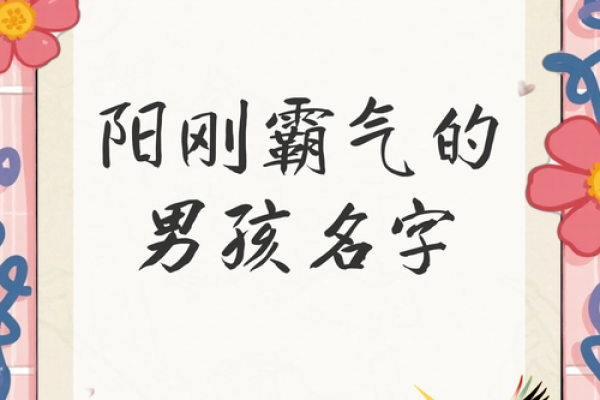 阳刚霸气的
男孩名字